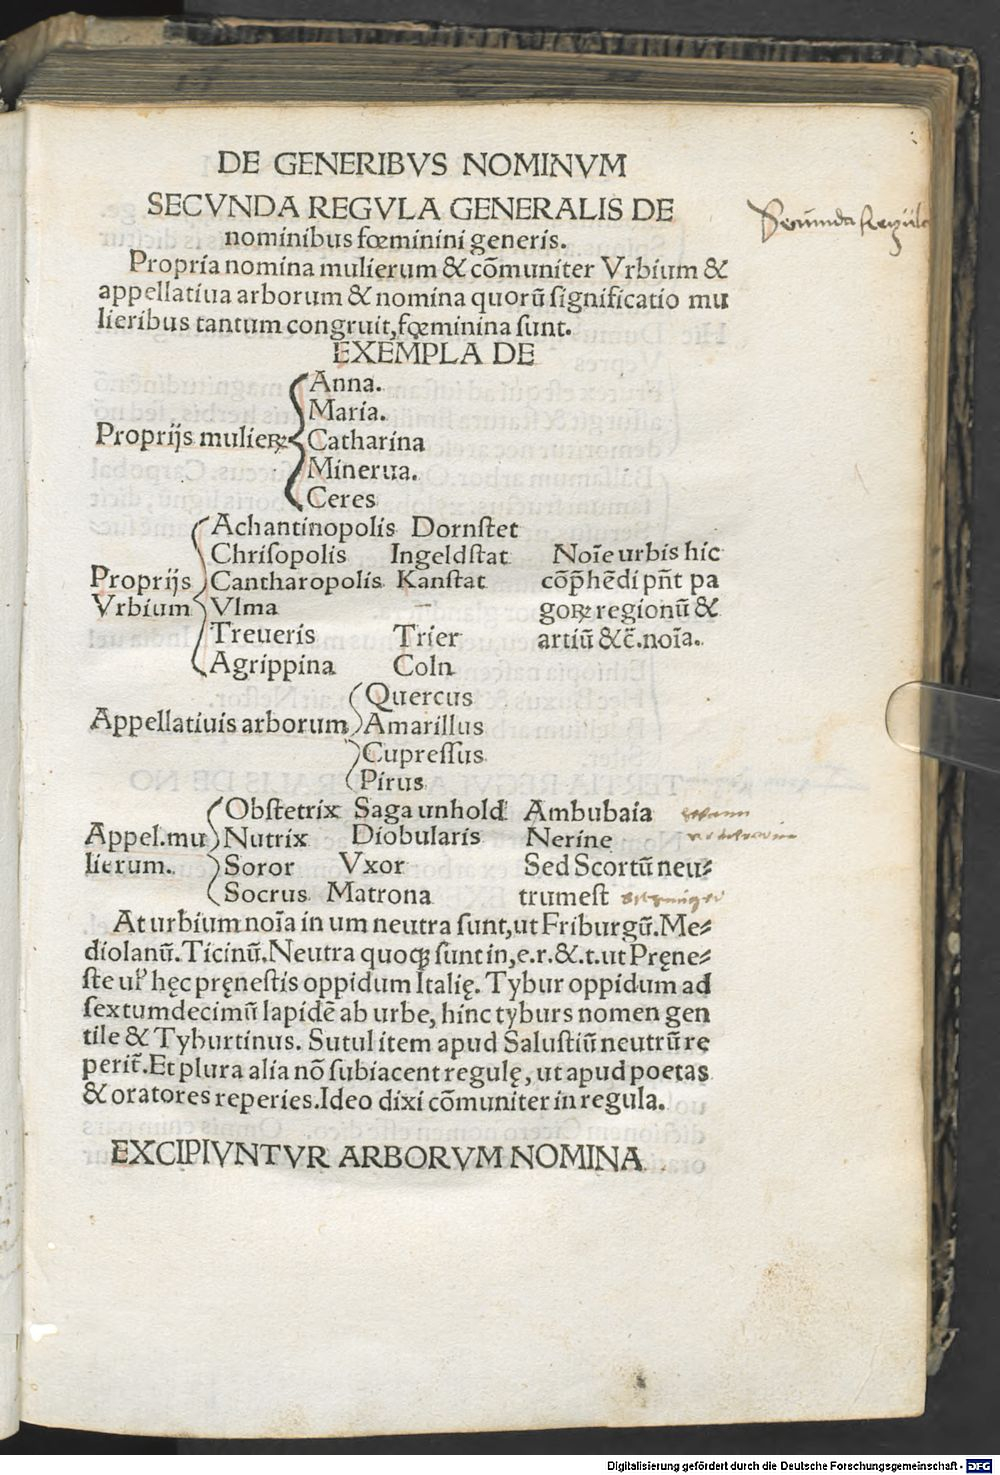 DE GENERIBVS NOMINVM
SECVNDA REGVLA GENERALIS DE
nominibus fœminini generis.
Secunda Regula
Propria nomina mulierum & cõmuniter Vrbium &
appellatiua arborum & nomina quorũ ſignificatio mu
lieribus tantum congruit, fœminina ſunt.
EXEMPLA DE
Proprijs mulieꝝ
Anna.
Maria.
Catharina
Minerua.
Ceres
Proprijs
Vrbium
Achantinopolis Dornſtet
Chriſopolis Ingeldſtat
Cantharopolis Kanſtat
Vlma —
Treueris Trier
Agrippina Coln
Noĩe urbis hic
cõp̃hẽdi pñt pa
goꝝ regionũ &
artiũ &c̃. noĩa.
Appellatiuis arborum
Quercus
Amarillus
Cupreſſus
Pirus
Appel.mu
lierum.
Obſtetrix Saga unhold Ambubaia
Nutrix Diobularis Nerine
Soror Vxor Sed Scortũ neu⸗
Socrus Matrona trumeſt
At urbium noĩa in um neutra ſunt, ut Friburgũ. Me⸗
diolanũ. Ticinũ. Neutra quoqꝫ ſunt in, e.r.&.t. ut Pręne⸗
ſte ur̃ hęc pręneſtis oppidum Italię. Tybur oppidum ad
ſextumdecimũ lapidẽ ab urbe, hinc tyburs nomen gen
tile & Tyburtinus. Sutul item apud Saluſtiũ neutrũ re
perit̃. Et plura alia nõ ſubiacent regulę, ut apud poetas
& oratores reperies. Ideo dixi cõmuniter in regula.
EXCIPIVNTVR ARBORVM NOMINA
Digitalisierung gefördert durch die Deutsche Forschungsgemeinschaft - DFG